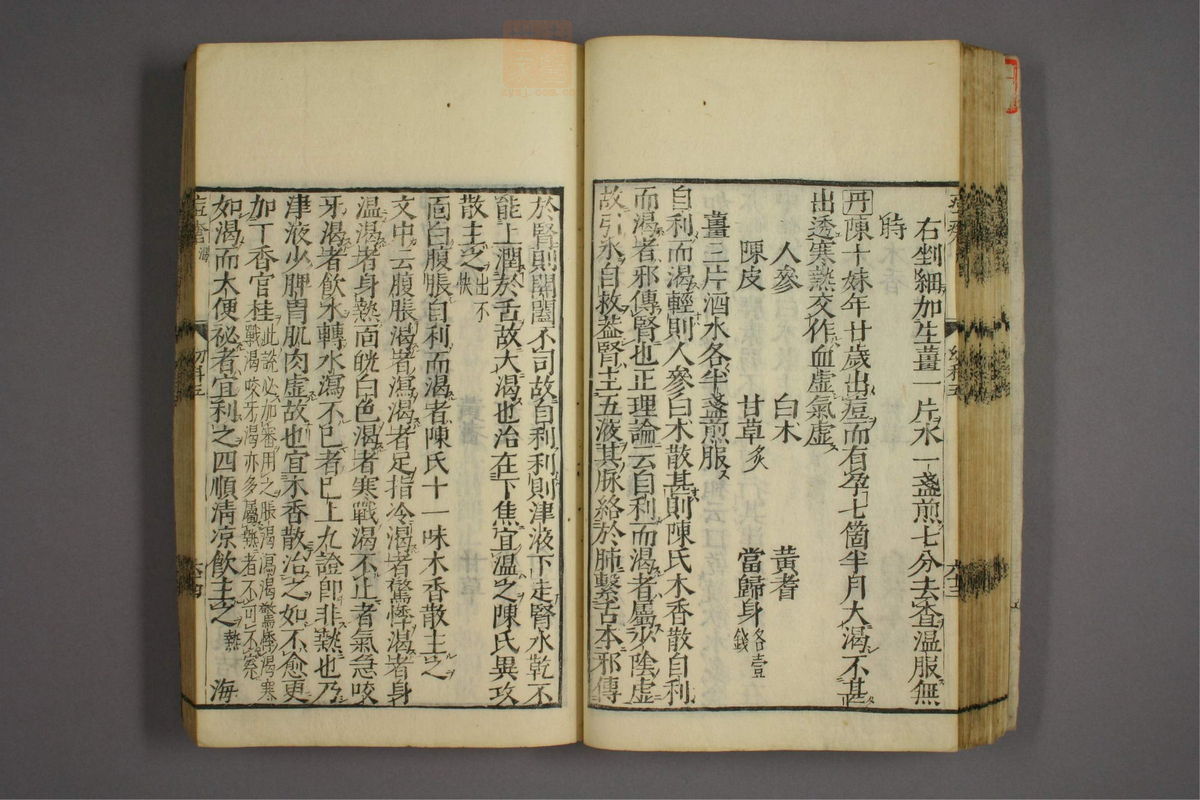 右剉細加生薑一片水一盞煎七分去查溫服無
時
丹陳十妹年廿歲出痘而有孕七箇半月大渴不甚
出透寒熱交作血虛氣虛
人參 白朮 黃耆
陳皮 甘草炙 當歸身各壹錢
薑三片酒水各半盞煎服
自利而渴輕則人參白朮散甚則陳氏木香散自利
而渴者邪傳腎也正理論云自利而渴者屬少陰虛
故引水自救蓋腎主五液其脉絡於肺繫舌本邪傳
於腎則開闔不司故自利利則津液下走腎水乾不
能上潤於舌故大渴也治在下焦宜溫之陳氏異攻
散主之出不快
面白腹脹自利而渴者陳氏十一味木香散主之
文中云腹脹渴者瀉渴者足指冷渴者驚悸渴者身
溫渴者身熱面㿠白色渴者寒戰渴不止者氣急咬
牙渴者飲水轉水瀉不已者已上九證即非熱也乃
津液少脾胃肌肉虛故也宜木香散治之如不愈更
加丁香官桂此説必加審用之脹渴瀉渴驚悸渴寒戰渴咬牙渴亦多屬熱者不可不察
如渴而大便祕者宜利之四順清涼飲主之熱 海